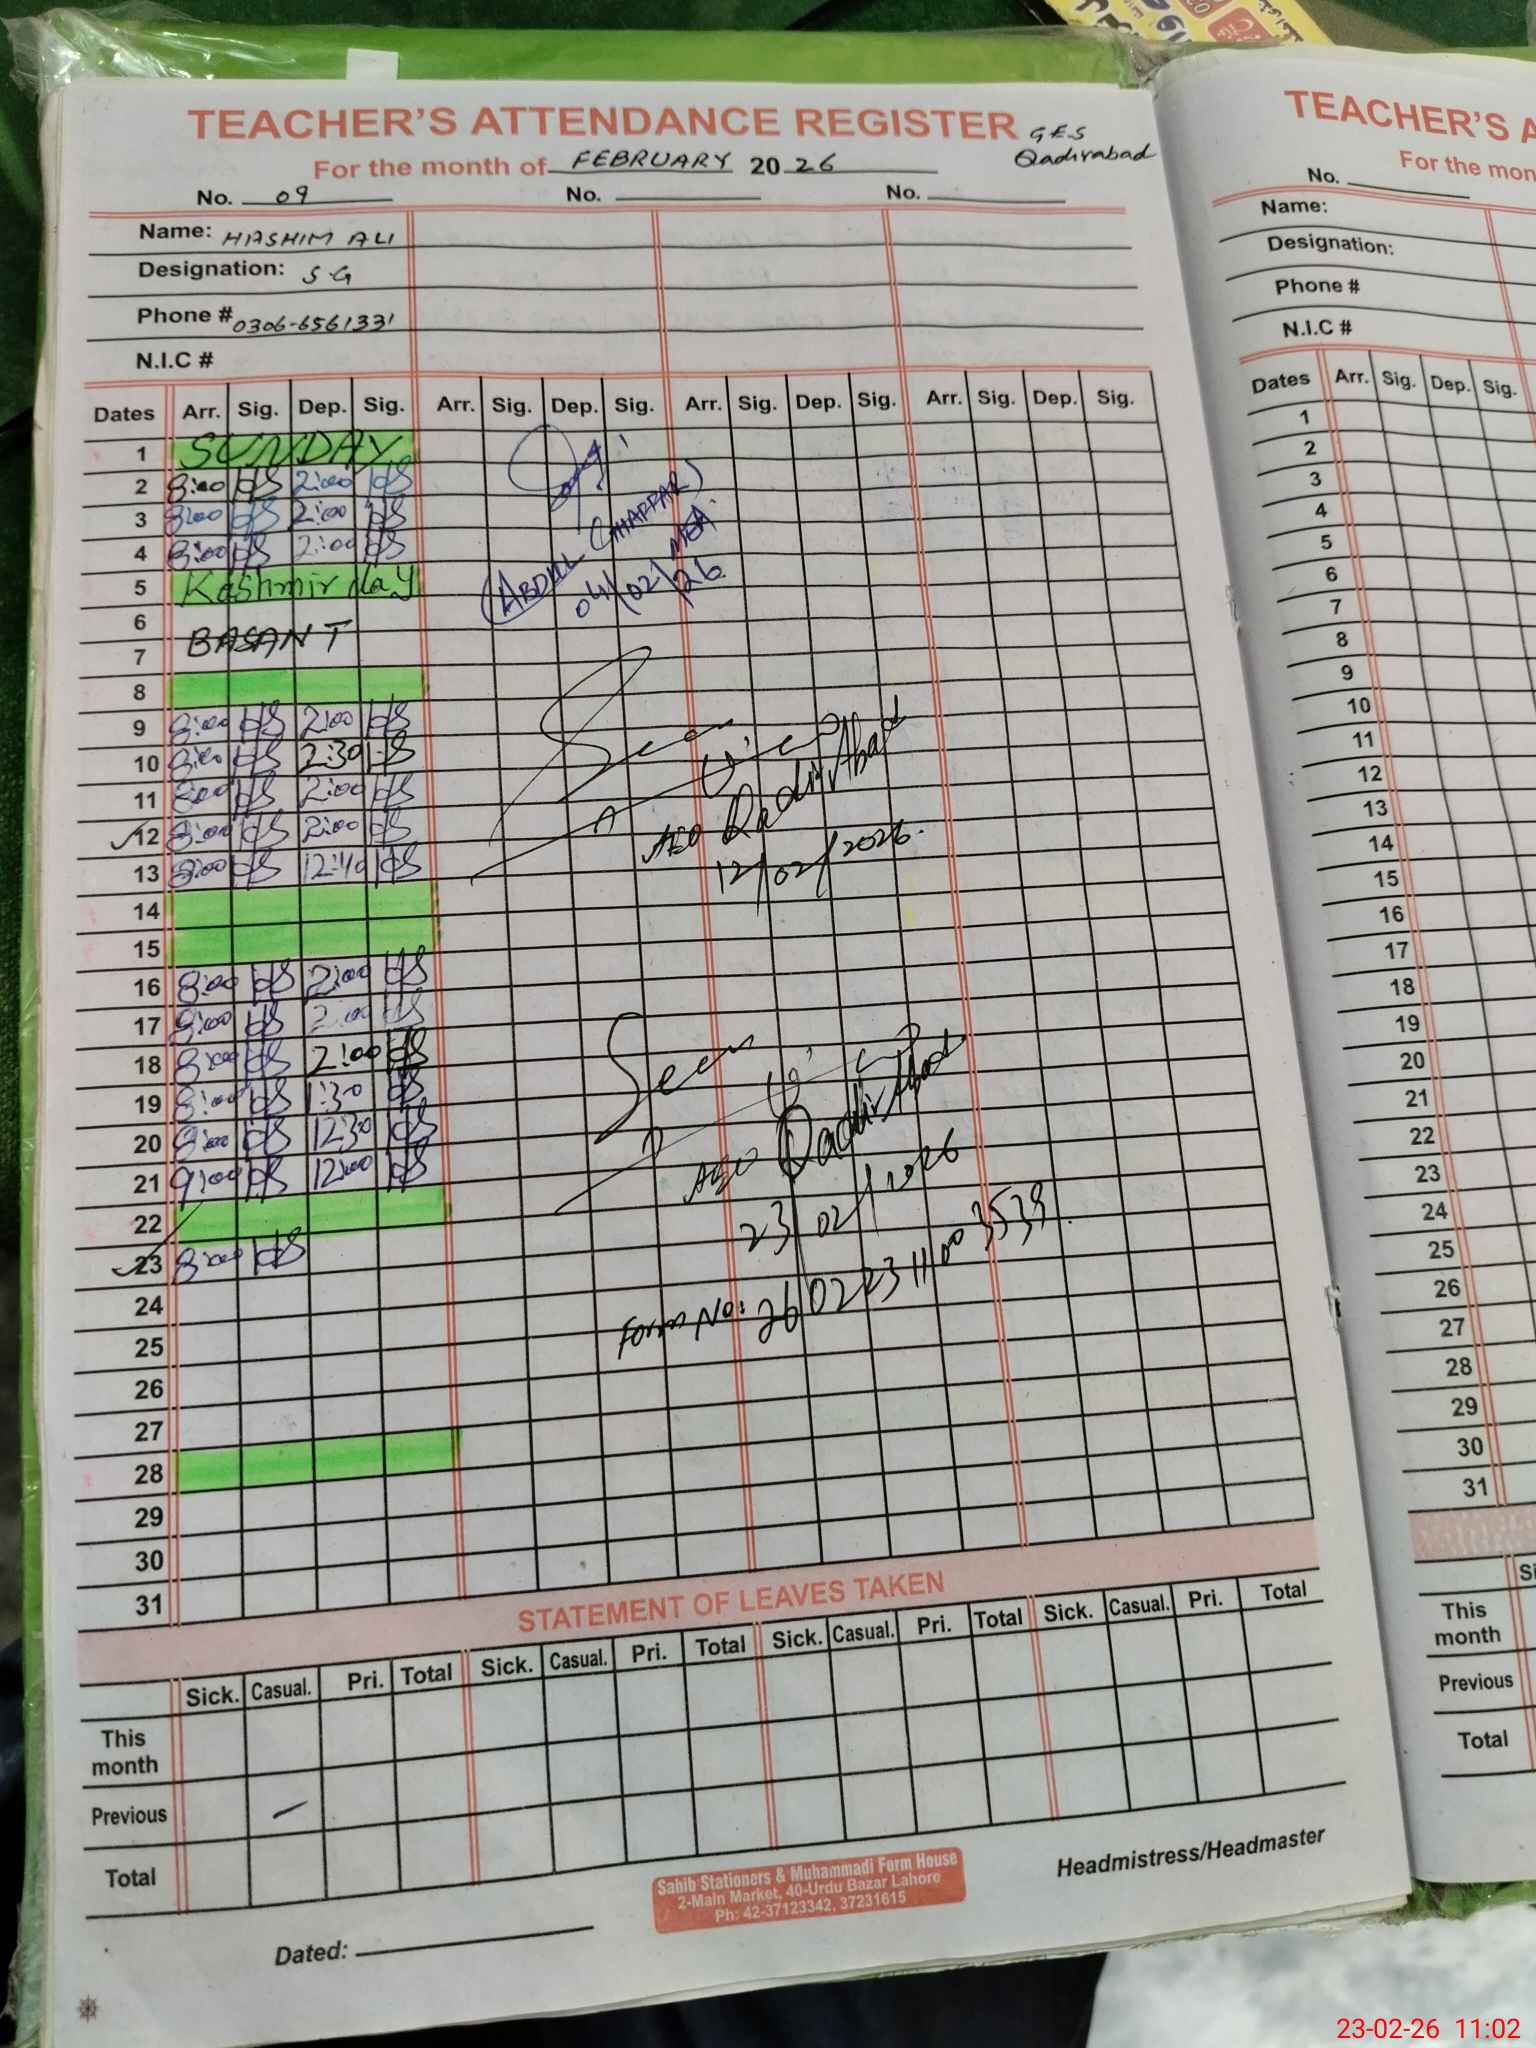 TEACHER'S ATTENDANCE REGISTER G.E.S
For the month of FEBRUARY 2026 Qadirabad
No. 09 No. No.
Name: HASHIM ALI
Designation: S-G
Phone # 0306-6561331
N.I.C #
Dates Arr. Sig. Dep. Sig. Arr. Sig. Dep. Sig. Arr. Sig. Dep. Sig. Arr. Sig. Dep. Sig.
1 SUNDAY
2 8:00 2:00
3 8:00 2:00
4 8:00 2:00
(ABDUL GHAFFAR) MEA
04/02/26
5 Kashmir day
6
BASANT
7
8
9 8:00 2:00
10 8:00 2:30
11 8:00 2:00
12 8:00 2:00
13 8:00 12:40
Seen
AEO Qadir Abad
12/02/2026.
14
15
16 8:00 2:00
17 8:00 2:00
18 8:00 2:00
19 8:00 1:30
20 8:00 12:30
21 9:00 12:00
22
23 8:00
Seen
AEO Qadir Abad
23/02/2026
Form No: 260223110003538.
24
25
26
27
28
29
30
31
STATEMENT OF LEAVES TAKEN
Sick. Casual. Pri. Total Sick. Casual. Pri. Total Sick. Casual. Pri. Total Sick. Casual. Pri. Total
This
month
Previous —
Total
Headmistress/Headmaster
Sahib Stationers & Muhammadi Form House
2-Main Market, 40-Urdu Bazar Lahore
Ph: 42-37123342, 37231615
Dated:
TEACHER'S A
For the mon
No.
Name:
Designation:
Phone #
N.I.C #
Dates Arr. Sig. Dep. Sig.
1
2
3
4
5
6
7
8
9
10
11
12
13
14
15
16
17
18
19
20
21
22
23
24
25
26
27
28
29
30
31
Si
This
month
Previous
Total
23-02-26 11:02